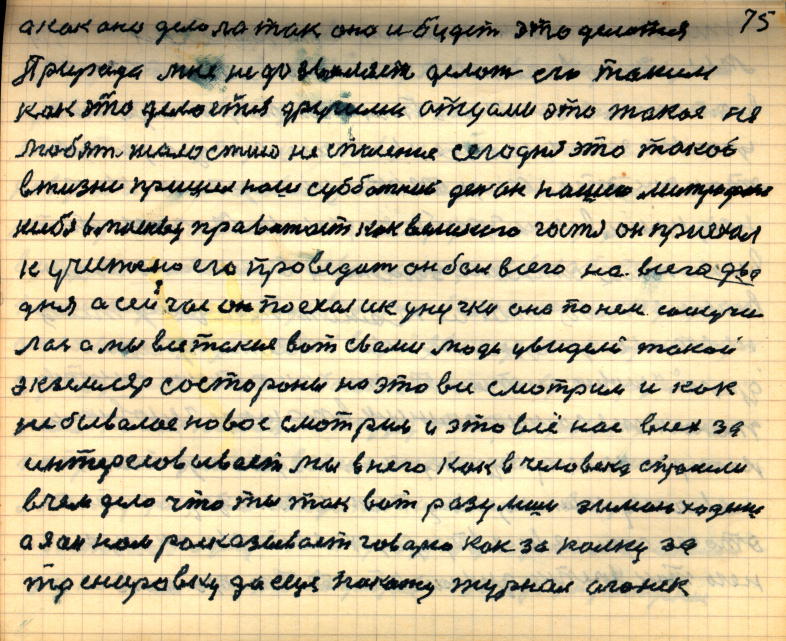 75
а как оно делола так оно и будет это делотся
Прирада мне недозволяет делот его таким
как это делоется другими отцами это такое не
любят жалостию не стаение сегодня это такое
в жизни пришел наш субботний декан нашей
как великого гостя он приехал
к учителю его проведат он бал всего на всего два
дня а сейчас он поехал ик унучки она по нем соскучи
лас а мы все такие вот с вами люди увидели такой
экземпляр состороны на это все смотрим и как
небывалое новое смотрим и это всё нас всех за
интересовывает мы в него как в человека спросили
в чем дело что ты так вот разумиш зимой ходит
а он нам росказывает говарю как закалку за
тренировку да еще покажу журнал огонек